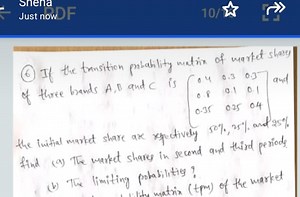 Shena
Just now
PDF
10/
⑥ If the transition probability matrix of market shares
of three brands A, B and C is [0.4 0.3 0.3
0.8 0.1 0.1
0.35 0.25 0.4] and
the initial market share are respectively 50%, 25% and 25%
find (a) The market shares in second and third periods
(b) The limiting probabilities?
matrix (tpm) of the market